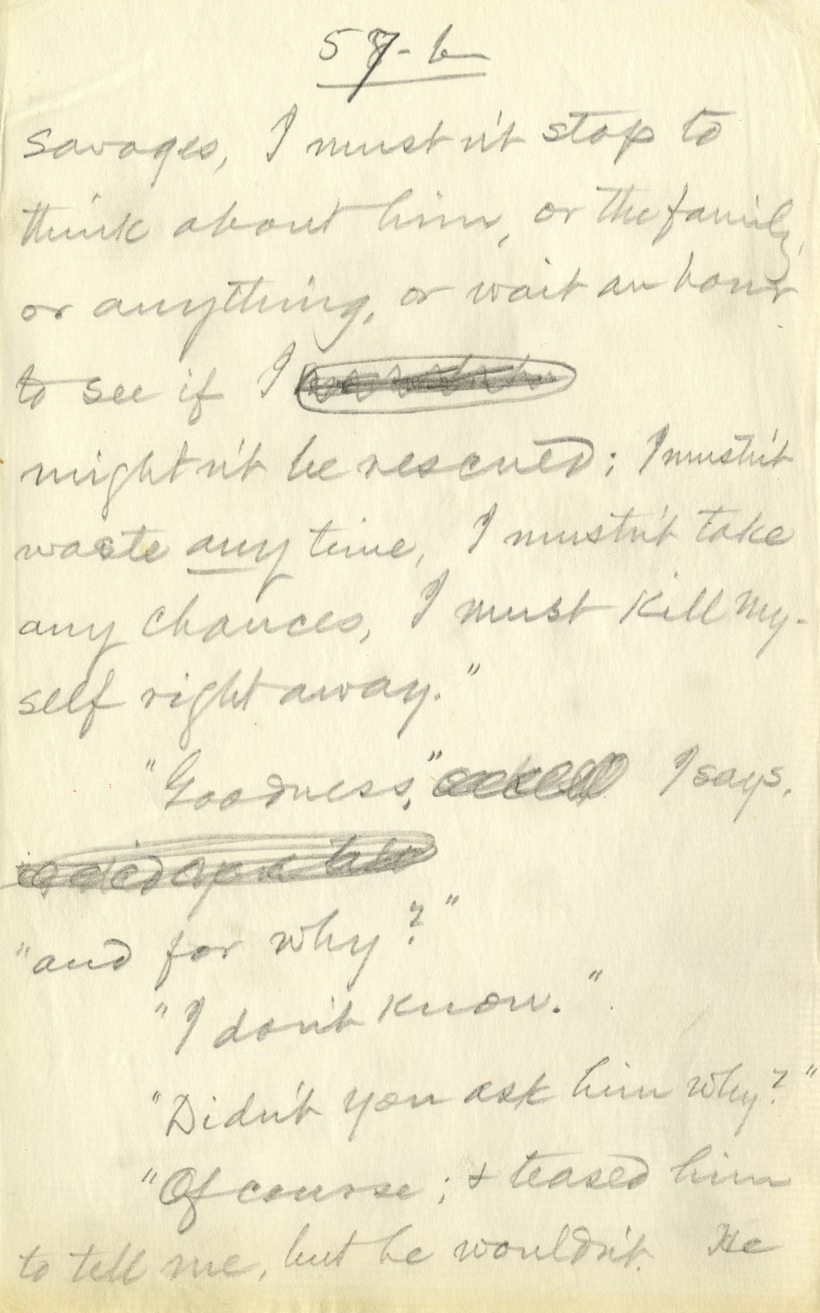 57-b
savages, I mustn't stop to
think about him, or the family,
or anything, or wait an hour
to see if I
mightn't be rescued; I mustn't
waste any time, I mustn't take
any chances, I must kill my-
self right away."
"Goodness," I says,
"and for why?"
"I don't know."
"Didn't you ask him why?"
"Of course; & teased him
to tell me, but he wouldn't. He